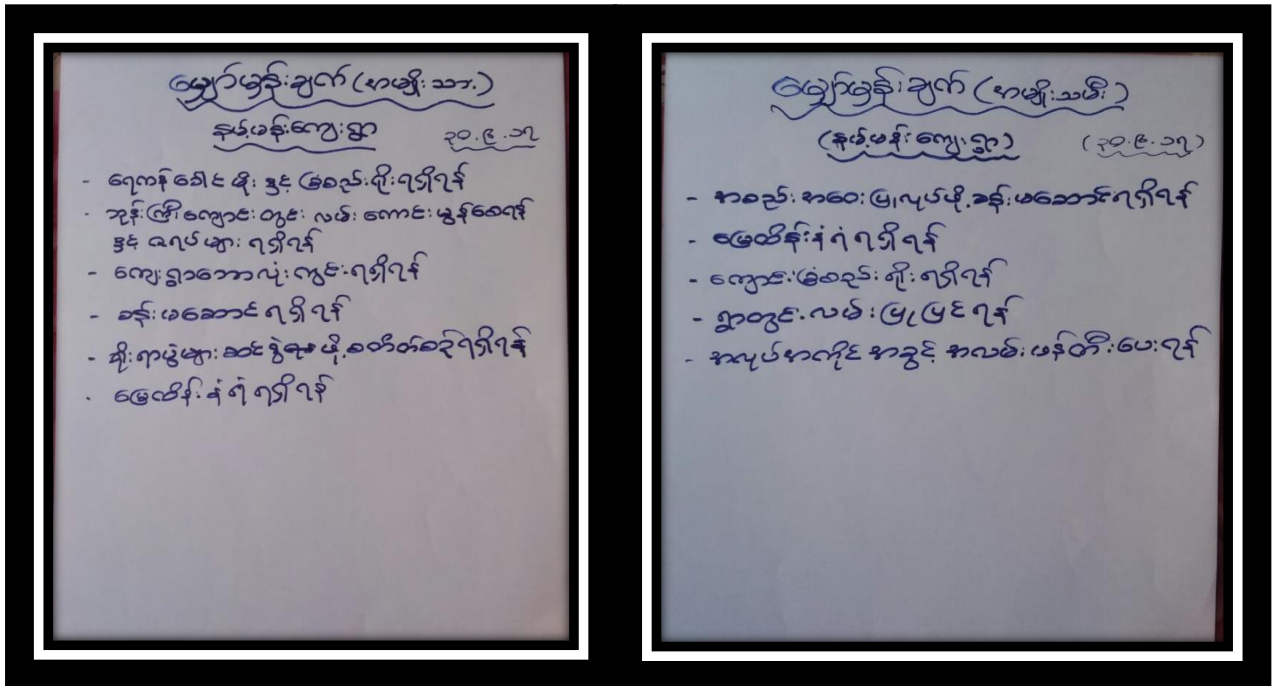 မျှော်မှန်းချက် (အမျိုးသား)
နမ့်မန်းကျေးရွာ ၃၀.၉.၁၇
- ရေကန်ခေါင်မိုး နှင့် ခြံစည်းရိုးရရှိရန်
- ဘုန်းကြီးကျောင်းတွင်း လမ်းကောင်းမွန်စေရန်
နှင့် ဇရပ်များ ရရှိရန်
- ကျေးရွာဘောလုံးကွင်းရရှိရန်
- ခန်းမဆောင် ရရှိရန်
- မြေထိန်းနံရံရရှိရန်
မျှော်မှန်းချက် (အမျိုးသမီး)
(နမ့်မန်းကျေးရွာ) (၃၀.၉.၁၇)
- အစည်းအဝေးပြုလုပ်ဖို့ ခန်းမဆောင်ရရှိရန်
- မြေထိန်းနံရံရရှိရန်
- ကျောင်းခြံစည်းရိုးရရှိရန်
- ရွာတွင်းလမ်းပြုပြင်ရန်
- အလုပ်အကိုင်အခွင့်အလမ်းဖန်တီးပေးရန်